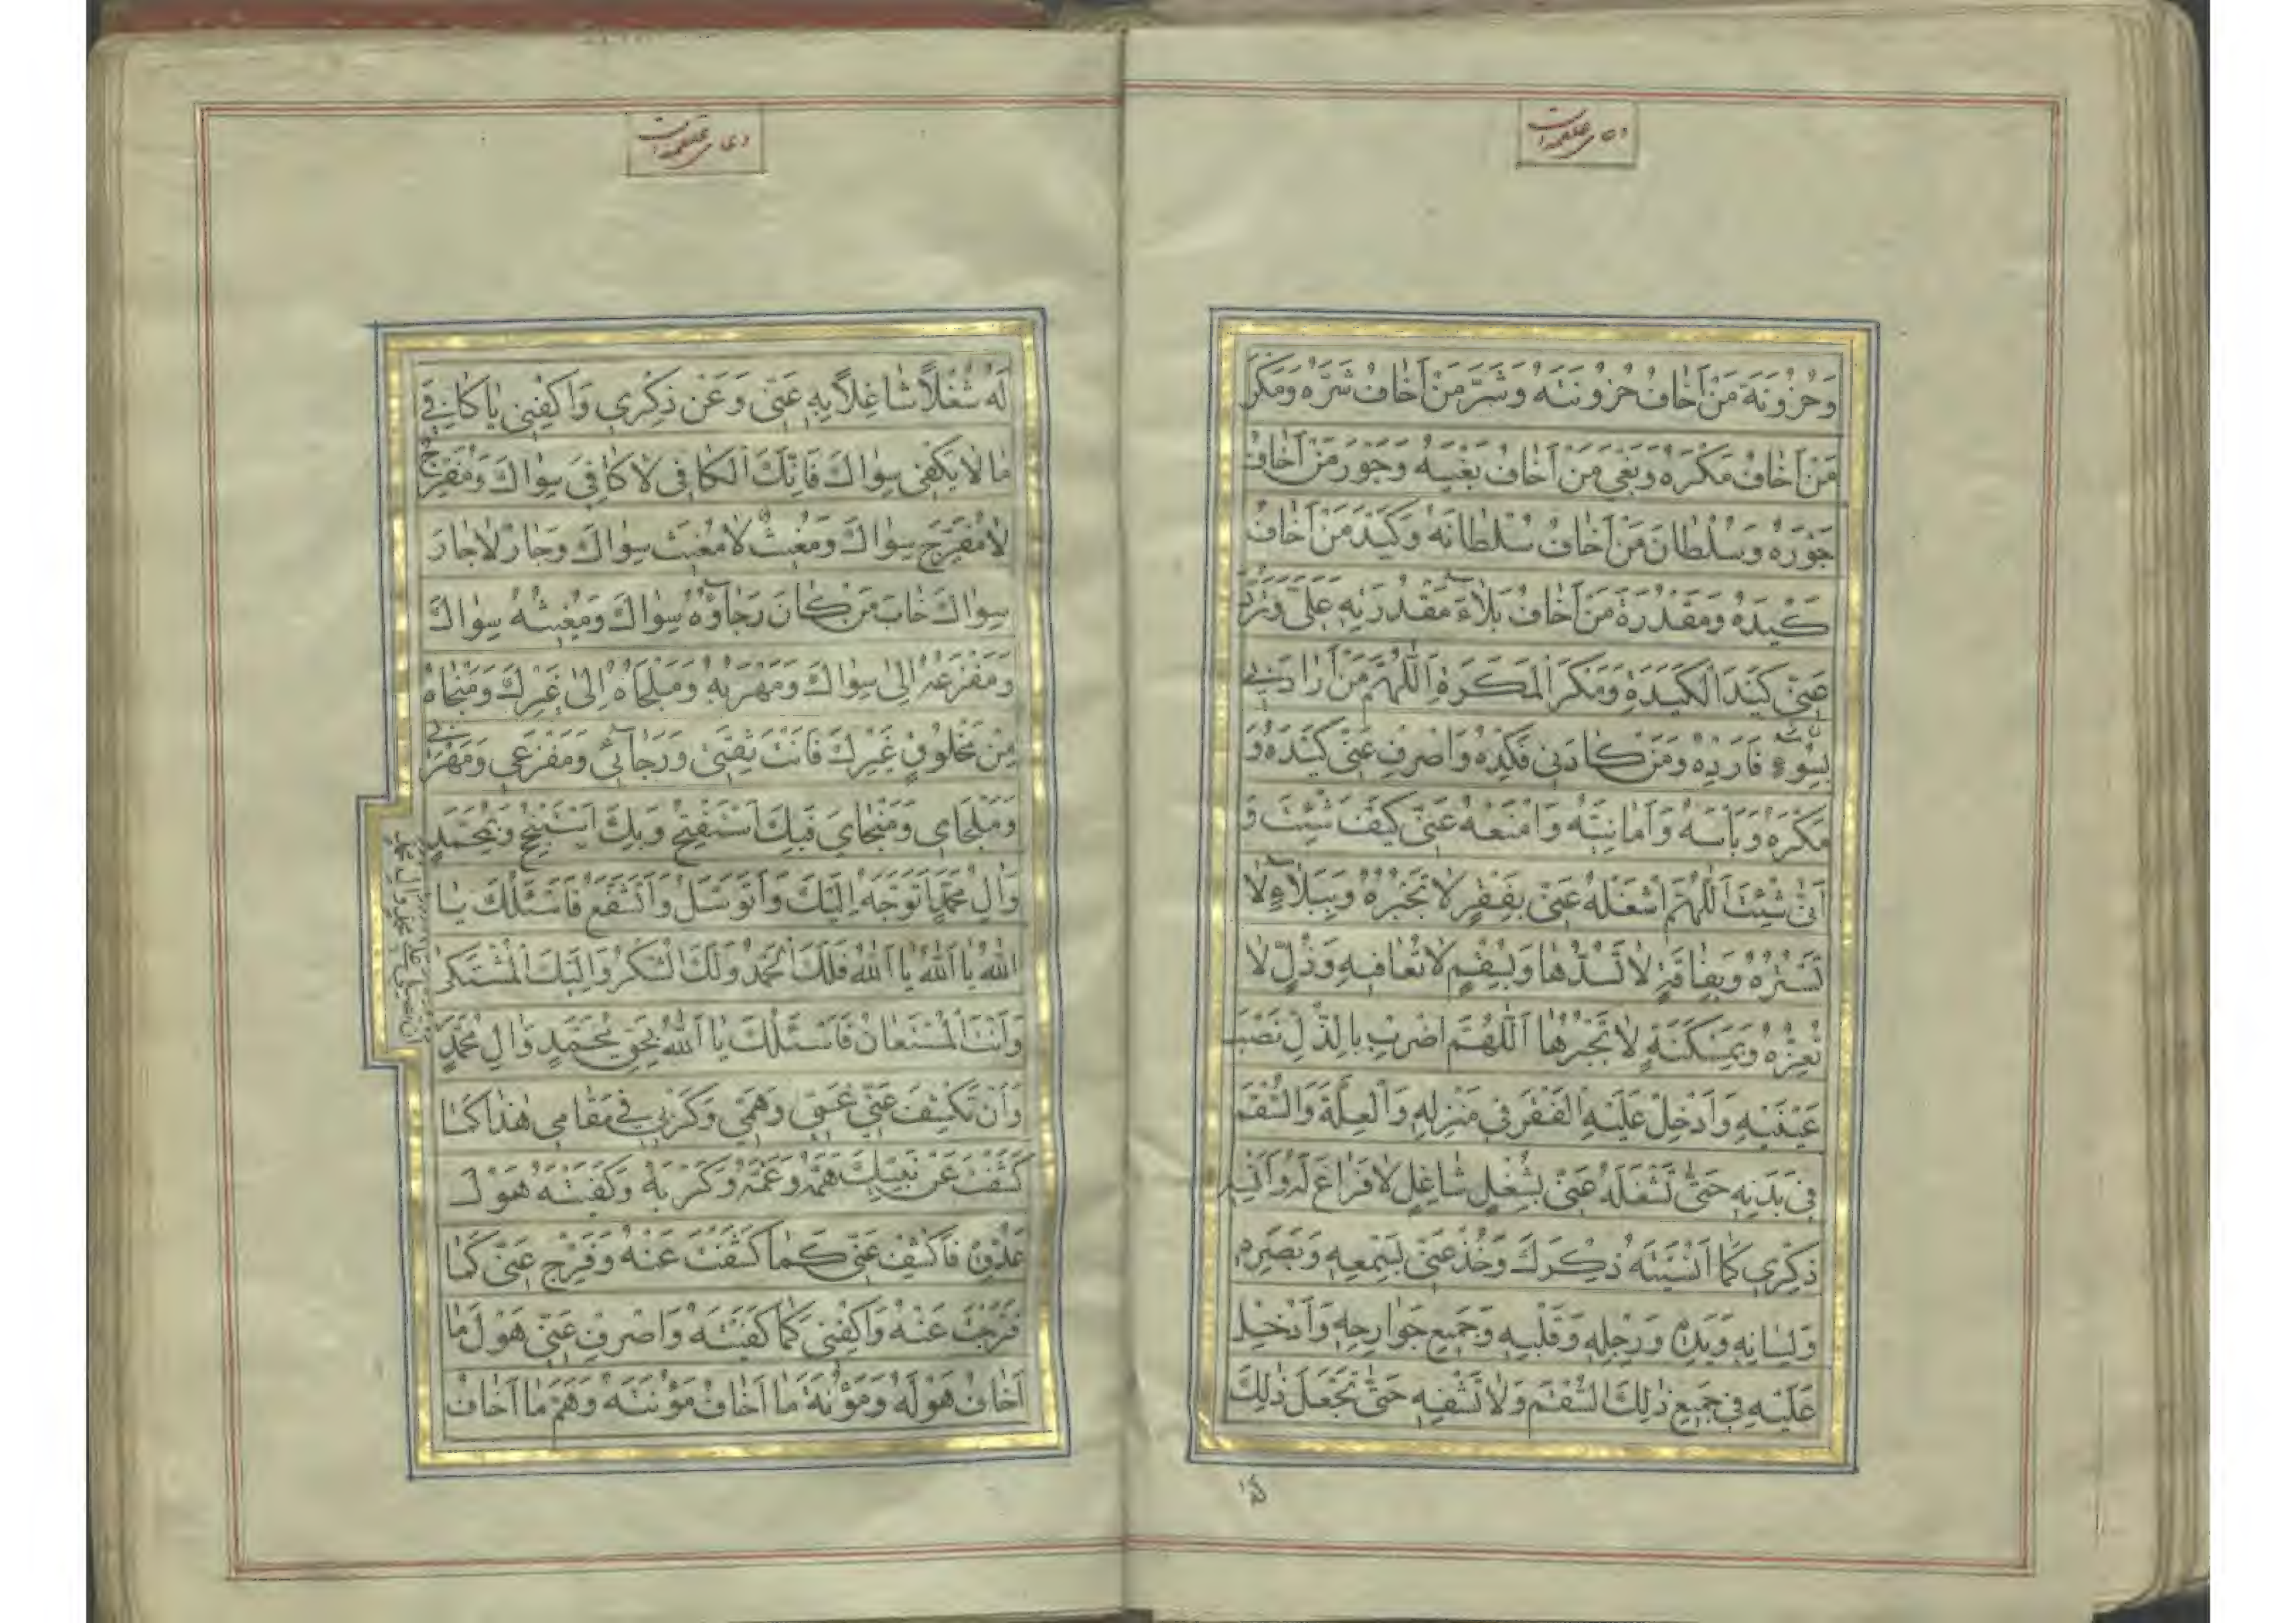 دعای علقمه است
وَحُزُونَةَ مَنْ اَخٰافُ حُزُونَتَهُ وَشَرَّ مَنْ اَخٰافُ شَرَّهُ وَمَكْرَ
مَنْ اَخٰافُ مَكْرَهُ وَبَغْیَ مَنْ اَخٰافُ بَغْيَهُ وَجَوْرَ مَنْ اَخٰافُ
جَوْرَهُ وَسُلْطٰانَ مَنْ اَخٰافُ سُلْطٰانَهُ وَكَيْدَ مَنْ اَخٰافُ
كَيْدَهُ وَمَقْدُرَةَ مَنْ اَخٰافُ بَلٰاءَ مَقْدُرَتِهِ عَلَیَّ وَتَرُدَّ
عَنّی كَيْدَ الْكَيَدَةِ وَمَكْرَ الْمَكَرَةِ اَللّٰهُمَّ مَنْ اَرٰادَنی
بِسُوۤءٍ فَاَرِدْهُ وَمَنْ كٰادَنی فَكِدْهُ وَاصْرِفْ عَنّی كَيْدَهُ وَ
مَكْرَهُ وَبَاْسَهُ وَاَمٰانِيَّهُ وَامْنَعْهُ عَنّی كَيْفَ شِئْتَ وَ
اَنّٰی شِئْتَ اَللّٰهُمَّ اشْغَلْهُ عَنّی بِفَقْرٍ لٰا تَجْبُرُهُ وَبِبَلٰاۤءٍ لٰا
تَسْتُرُهُ وَبِفٰاقَةٍ لٰا تَسُدُّهٰا وَبِسُقْمٍ لٰا تُعٰافيهِ وَذُلٍّ لٰا
تُعِزُّهُ وَبِمَسْكَنَةٍ لٰا تَجْبُرُهٰا اَللّٰهُمَّ اضْرِبْ بِالذُّلِّ نَصْبَ
عَيْنَيْهِ وَاَدْخِلْ عَلَيْهِ الْفَقْرَ فی مَنْزِلِهِ وَالْعِلَّةَ وَالسُّقْمَ
فی بَدَنِهِ حَتّٰی تَشْغَلَهُ عَنّی بِشُغْلٍ شٰاغِلٍ لٰا فَرٰاغَ لَهُ وَاَنْسِهِ
ذِكْری كَمٰا اَنْسَيْتَهُ ذِكْرَكَ وَخُذْ عَنّی بِسَمْعِهِ وَبَصَرِهِ
وَلِسٰانِهِ وَيَدِهِ وَرِجْلِهِ وَقَلْبِهِ وَجَميعِ جَوٰارِحِهِ وَاَدْخِلْ
عَلَيْهِ فی جَميعِ ذٰلِكَ السُّقْمَ وَلٰا تَشْفِهِ حَتّٰی تَجْعَلَ ذٰلِكَ
دعای علقمه است
لَهُ شُغْلًا شٰاغِلًا بِهِ عَنّی وَعَنْ ذِكْری وَاكْفِنی يٰا كٰافِیَ
مٰا لٰا يَكْفی سِوٰاكَ فَاِنَّكَ الْكٰافی لٰا كٰافِیَ سِوٰاكَ وَمُفَرِّجٌ
لٰا مُفَرِّجَ سِوٰاكَ وَمُغيثٌ لٰا مُغيثَ سِوٰاكَ وَجٰارٌ لٰا جٰارَ
سِوٰاكَ خٰابَ مَنْ كٰانَ رَجٰاۤؤُهُ سِوٰاكَ وَمُغيثُهُ سِوٰاكَ
وَمَفْزَعُهُ اِلٰی سِوٰاكَ وَمَهْرَبُهُ وَمَلْجَاهُ اِلٰی غَيْرِكَ وَمَنْجٰاهُ
مِنْ مَخْلُوقٍ غَيْرِكَ فَاَنْتَ ثِقَتی وَرَجٰاۤئی وَمَفْزَعی وَمَهْرَبی
وَمَلْجَای وَمَنْجٰایَ فَبِكَ اَسْتَفْتِحُ وَبِكَ اَسْتَنْجِحُ وَبِمُحَمَّدٍ
وَاٰلِ مُحَمَّدٍ اَتَوَجَّهُ اِلَيْكَ وَاَتَوَسَّلُ وَاَتَشَفَّعُ فَاَسْئَلُكَ يٰا
اَللّٰهُ يٰا اَللّٰهُ يٰا اَللّٰهُ فَلَكَ الْحَمْدُ وَلَكَ الشُّكْرُ وَاِلَيْكَ الْمُشْتَكٰی
وَاَنْتَ الْمُسْتَعٰانُ فَاَسْئَلُكَ يٰا اَللّٰهُ بِحَقِّ مُحَمَّدٍ وَاٰلِ مُحَمَّدٍ
اَنْ تُصَلِّیَ عَلٰی مُحَمَّدٍ وَاٰلِ مُحَمَّدٍ
وَاَنْ تَكْشِفَ عَنّی غَمّی وَهَمّی وَكَرْبی فی مَقٰامی هٰذٰا كَمٰا
كَشَفْتَ عَنْ نَبِيِّكَ هَمَّهُ وَغَمَّهُ وَكَرْبَهُ وَكَفَيْتَهُ هَوْلَ
عَدُوِّهِ فَاكْشِفْ عَنّی كَمٰا كَشَفْتَ عَنْهُ وَفَرِّجْ عَنّی كَمٰا
فَرَّجْتَ عَنْهُ وَاكْفِنی كَمٰا كَفَيْتَهُ وَاصْرِفْ عَنّی هَوْلَ مٰا
اَخٰافُ هَوْلَهُ وَمَؤُنَةَ مٰا اَخٰافُ مَؤُنَتَهُ وَهَمَّ مٰا اَخٰافُ